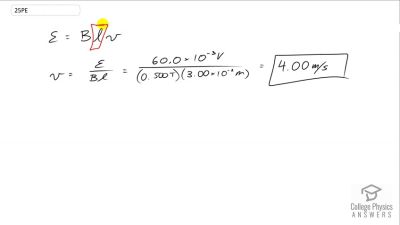 25PE
ε = Blv
v = ε / Bl = 60.0 × 10⁻³ V / (0.500 T)(3.00 × 10⁻² m) = 4.00 m/s
College Physics
ANSWERS